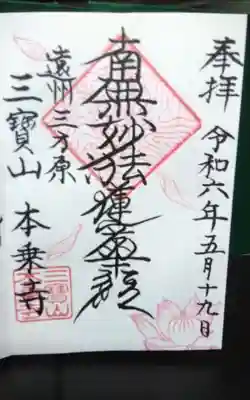 奉拝 令和六年五月十九日
南無妙法蓮華経
遠州三方原
三寶山 本乗寺